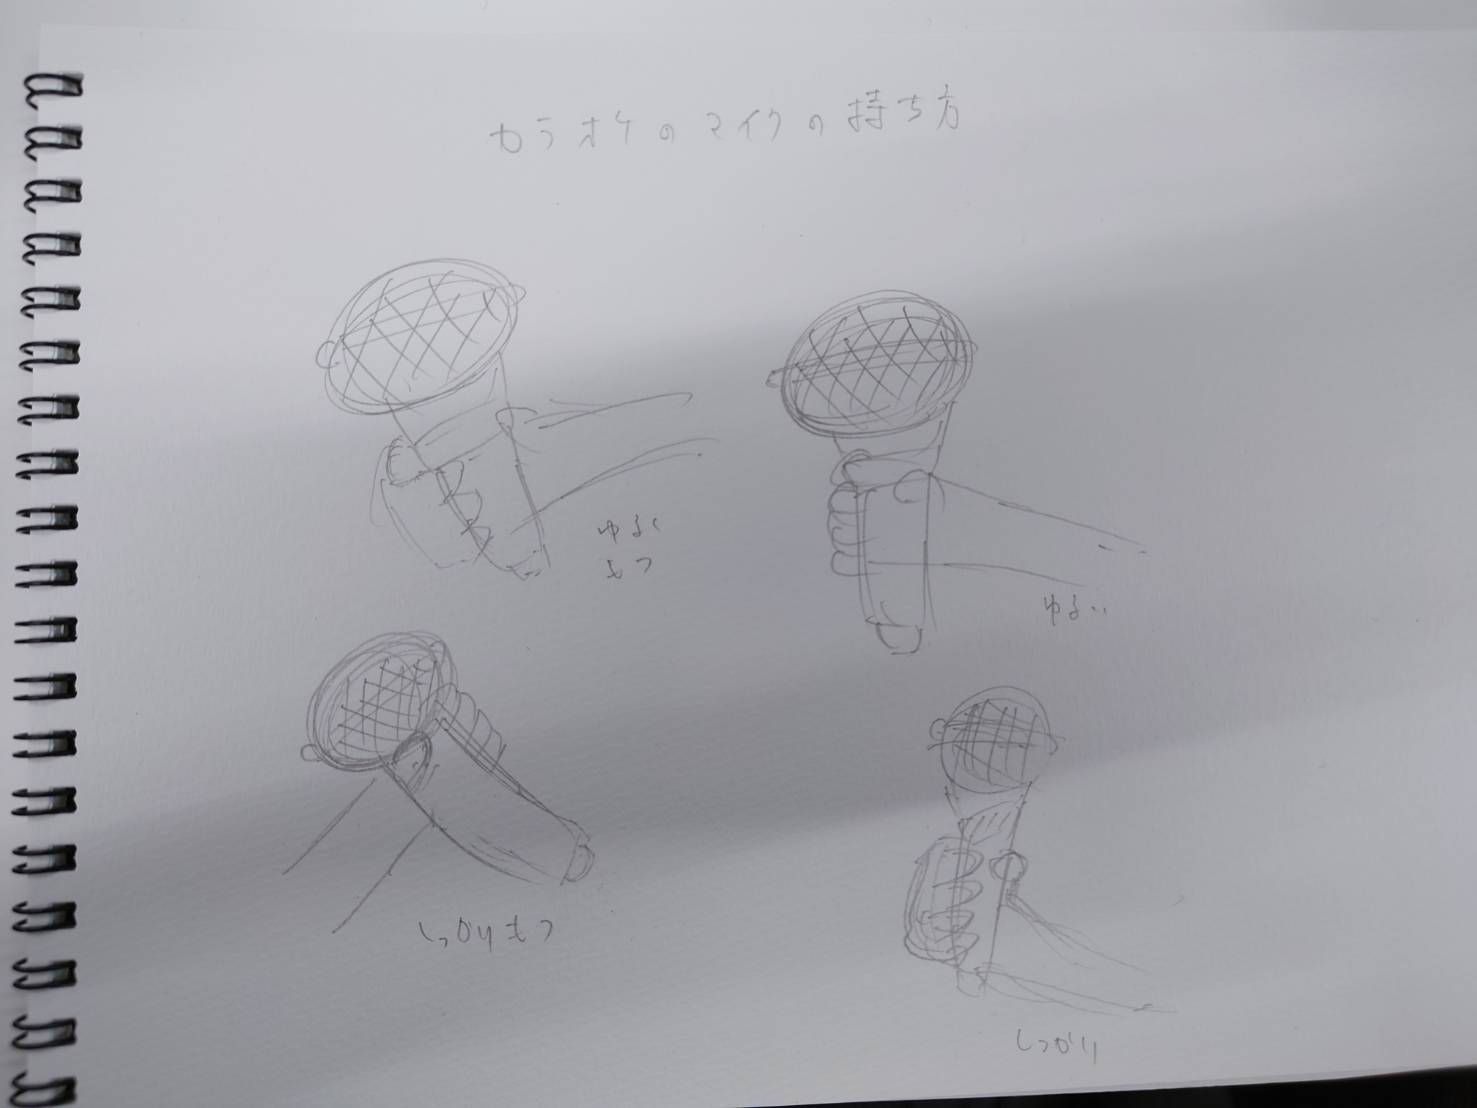 カラオケのマイクの持ち方
ゆるく
もつ
ゆるい
しっかりもつ
しっかり